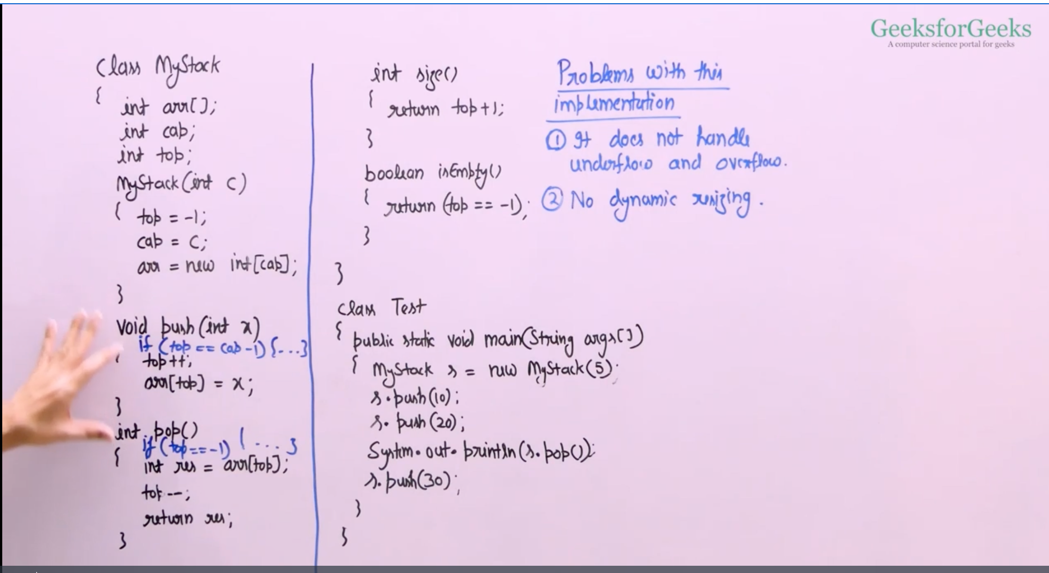 GeeksforGeeks
A computer science portal for geeks
class MyStack
{
int arr[];
int cap;
int top;
MyStack(int c)
{ top = -1;
cap = c;
arr = new int[cap];
}
void push(int x)
if (top == cap-1) {...}
{ top++;
arr[top] = x;
}
int pop()
if (top==-1) { ... }
{ int res = arr[top];
top--;
return res;
}
int size()
{ return top+1;
}
boolean isEmpty()
{ return (top == -1);
}
}
class Test
{ public static void main(String args[])
{ MyStack s = new MyStack(5);
s.push(10);
s.push(20);
System.out.println(s.pop());
s.push(30);
}
}
Problems with this
implementation
① It does not handle
underflow and overflow.
② No dynamic resizing.